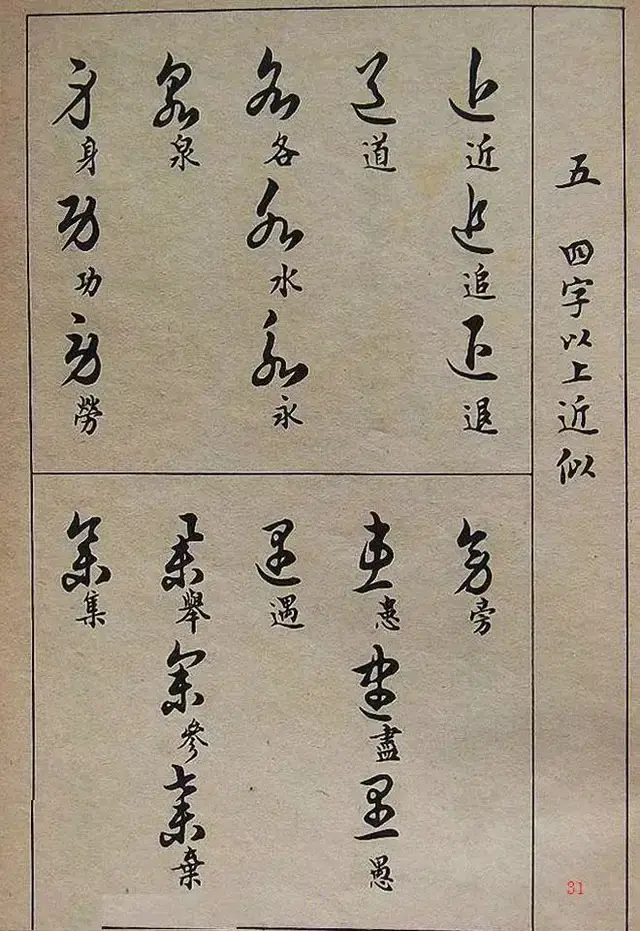 五 四字以上近似
近 追 退
道
各 水 永
泉
身 功 勞
旁
患 盡 愚
遇
舉 參 棄
集
31